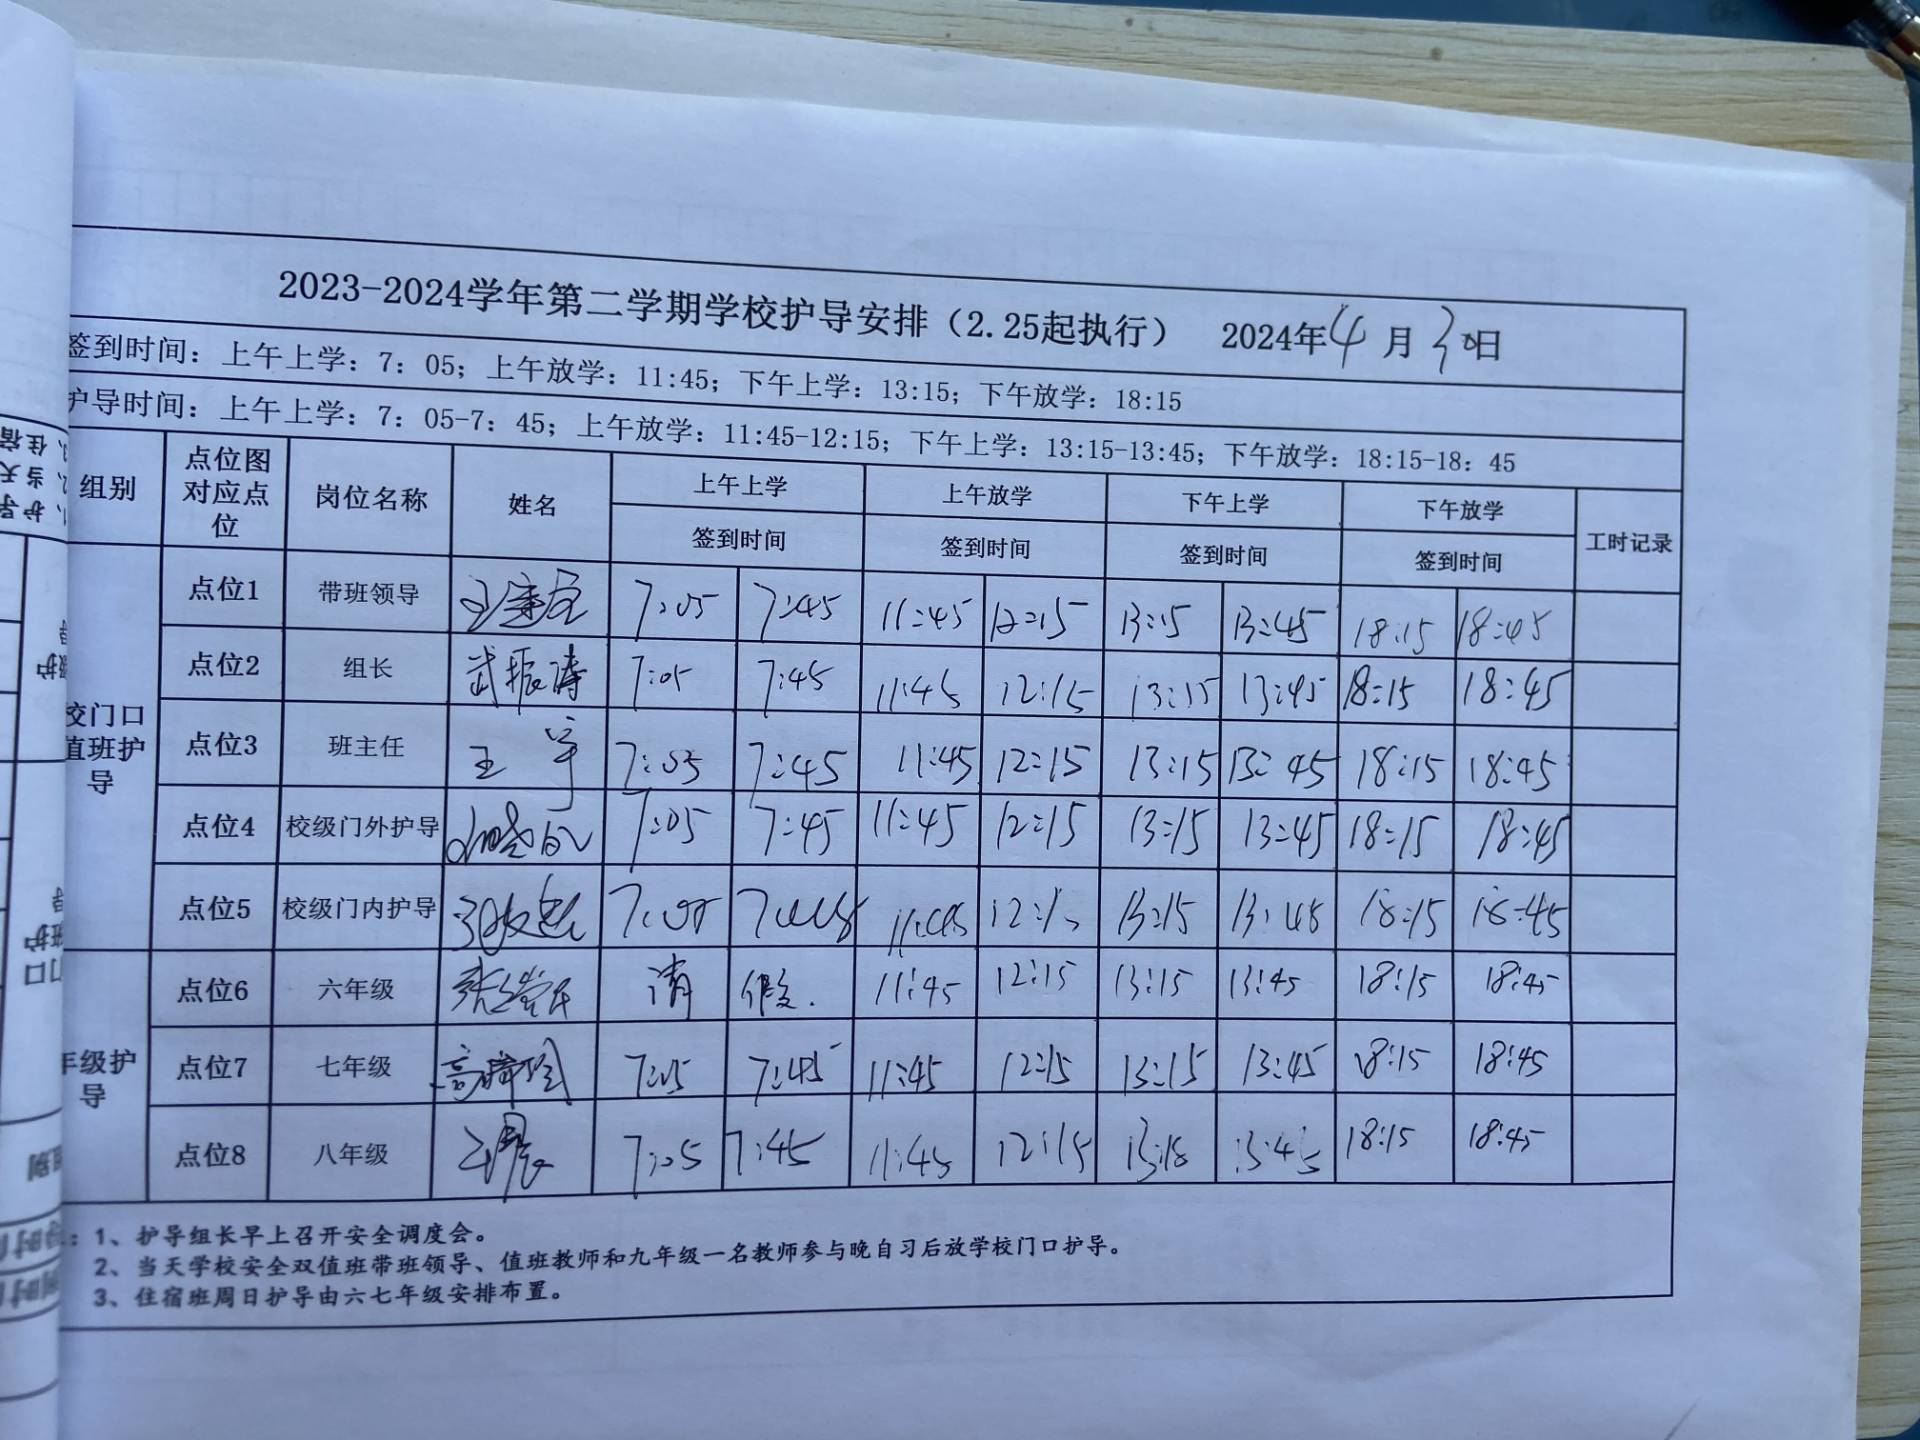 2023-2024学年第二学期学校护导安排（2.25起执行） 2024年4月30日
签到时间：上午上学：7：05；上午放学：11:45；下午上学：13:15；下午放学：18:15
护导时间：上午上学：7：05-7：45；上午放学：11:45-12:15；下午上学：13:15-13:45；下午放学：18:15-18：45
组别 点位图对应点位 岗位名称 姓名 上午上学 上午放学 下午上学 下午放学 工时记录
签到时间 签到时间 签到时间 签到时间
校门口值班护导
点位1 带班领导 7:05 7:45 11:45 12:15 13:15 13:45 18:15 18:45
点位2 组长 武振涛 7:05 7:45 11:45 12:15 13:15 13:45 18:15 18:45
点位3 班主任 王宇 7:05 7:45 11:45 12:15 13:15 13:45 18:15 18:45
点位4 校级门外护导 7:05 7:45 11:45 12:15 13:15 13:45 18:15 18:45
点位5 校级门内护导 7:05 7:45 11:45 12:15 13:15 13:45 18:15 18:45
年级护导
点位6 六年级 请 假. 11:45 12:15 13:15 13:45 18:15 18:45
点位7 七年级 7:05 7:45 11:45 12:15 13:15 13:45 18:15 18:45
点位8 八年级 7:05 7:45 11:45 12:15 13:15 13:45 18:15 18:45
：1、护导组长早上召开安全调度会。
2、当天学校安全双值班带班领导、值班教师和九年级一名教师参与晚自习后放学校门口护导。
3、住宿班周日护导由六七年级安排布置。